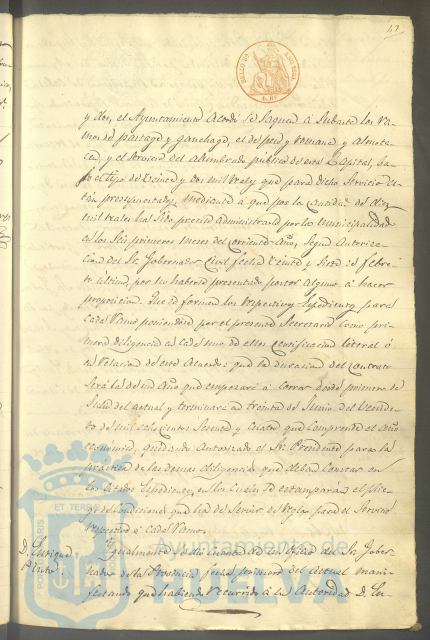 y dos, el Ayuntamiento acordó se saquen a subasta los ra-
mos de pastage y ganchage, el de peso y romana y almota-
cen, y el servicio del alumbrado publico de esta Capital, ba-
jo el tipo de veinte y dos mil que para dicho servicio es-
tán presupuestados, mediante a que por la cantidad de diez
mil reales ha sido preciso administrarlo por la municipalidad
en los seis primeros meses del corriente año, segun autoriza-
cion del Sr. Gobernador Civil fecha veinte y siete de Febre-
ro último, por no haberse presentado postor alguno a hacer
proposicion. Que se formen los respectivos expedientes para
cada ramo poniendose por el presente Secretario como pri-
mera diligencia en cada uno de ellos certificacion literal ó
en relacion de este acuerdo: que la duracion del contrato
será la de un año, que empezará á correr desde primero de
Julio del actual y terminará en treinta de Junio del venide-
ro de mil ochocientos sesenta y cuatro que comprende el año
economico, quedando autorizado el Sr. Presidente para la
práctica de las demas diligencias que deban constar en
los citados expedientes, en los cuales se estamparán el plie-
go de condiciones que ha de servir de regla para el servicio
respectivo á cada ramo.
D. Enrique
Pinto
Igualmente se dió cuenta de un oficio del Sr. Gober-
nador de la Provincia fecha primero del actual mani-
festando que habiendo recurrido á la autoridad D. En-
Ayuntamiento de
HUELVA